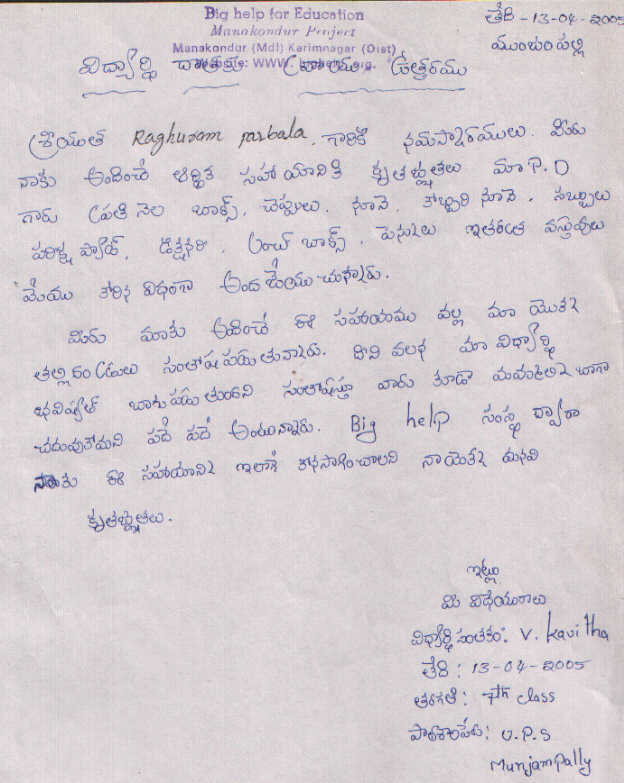 Big help for Education
Manakondur Project
Manakondur (Mdl) Karimnagar (Dist)
Website: WWW.
తేది - 13-04-2005
ముంజంపల్లి
విద్యార్థి ఉత్తరము
శ్రీయుత Raghuram parbala. గారికి నమస్కారములు. మీరు
నాకు అందించే ఆర్థిక సహాయానికి కృతజ్ఞతలు మా P.D
గారు ప్రతి నెల బాక్స్, చెప్పులు, నూనె, కొబ్బరి నూనె, సబ్బులు
పరీక్ష ప్యాడ్, డిక్షనరి, లంచ్ బాక్స్, పెన్సులు ఇతరత్ర వస్తువులు
మేము కోరిన విధంగా అంద జేయు చున్నారు.
మీరు మాకు అందించే ఈ సహాయము వల్ల మా యొక్క
తల్లి దండ్రులు సంతోష పడు తున్నారు. దీని వలన మా విద్యార్థి
భవిష్యత్ బాగు పడు తుందని సంతోషిస్తూ వారు కూడా మమ్మల్ని బాగా
చదువుకోమని పదే పదే అంటున్నారు. Big help సంస్థ ద్వారా
నాకు ఈ సహాయాన్ని ఇలాగే కొనసాగించాలని నా యొక్క మనవి
కృతజ్ఞతలు.
ఇట్లు
మీ విధేయురాలు
విధ్యార్థి సంతకం: V. Kavitha
తేది : 13-04-2005
తరగతి : 7th class
పాఠశాలపేరు: U.P.S
Munjampally